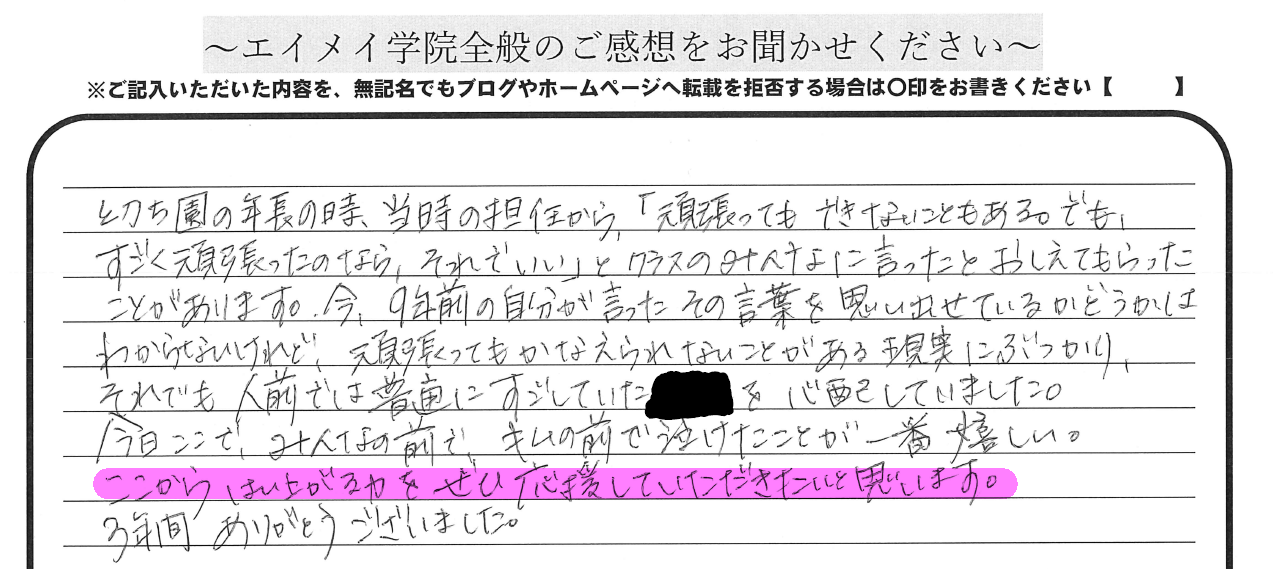 ～エイメイ学院全般のご感想をお聞かせください～
※ご記入いただいた内容を、無記名でもブログやホームページへ転載を拒否する場合は〇印をお書きください【　　】
ようち園の年長の時、当時の担任から、「頑張っても できないこともある。でも、
すごく頑張ったのなら、それでいい」と クラスのみんなに言ったと おしえてもらった
ことがあります。今、9年前の自分が言った その言葉を 思い出せているかどうかは
わからないけれど、頑張ってもかなえられないことがある現実にぶつかり、
それでも 人前では普通に すごしていた を 心配していました。
今日ここで、みんなの前で、キムの前で泣けたことが 一番 嬉しい。
ここから はい上がる力を ぜひ 応援していただきたいと思います。
3年間 ありがとうございました。